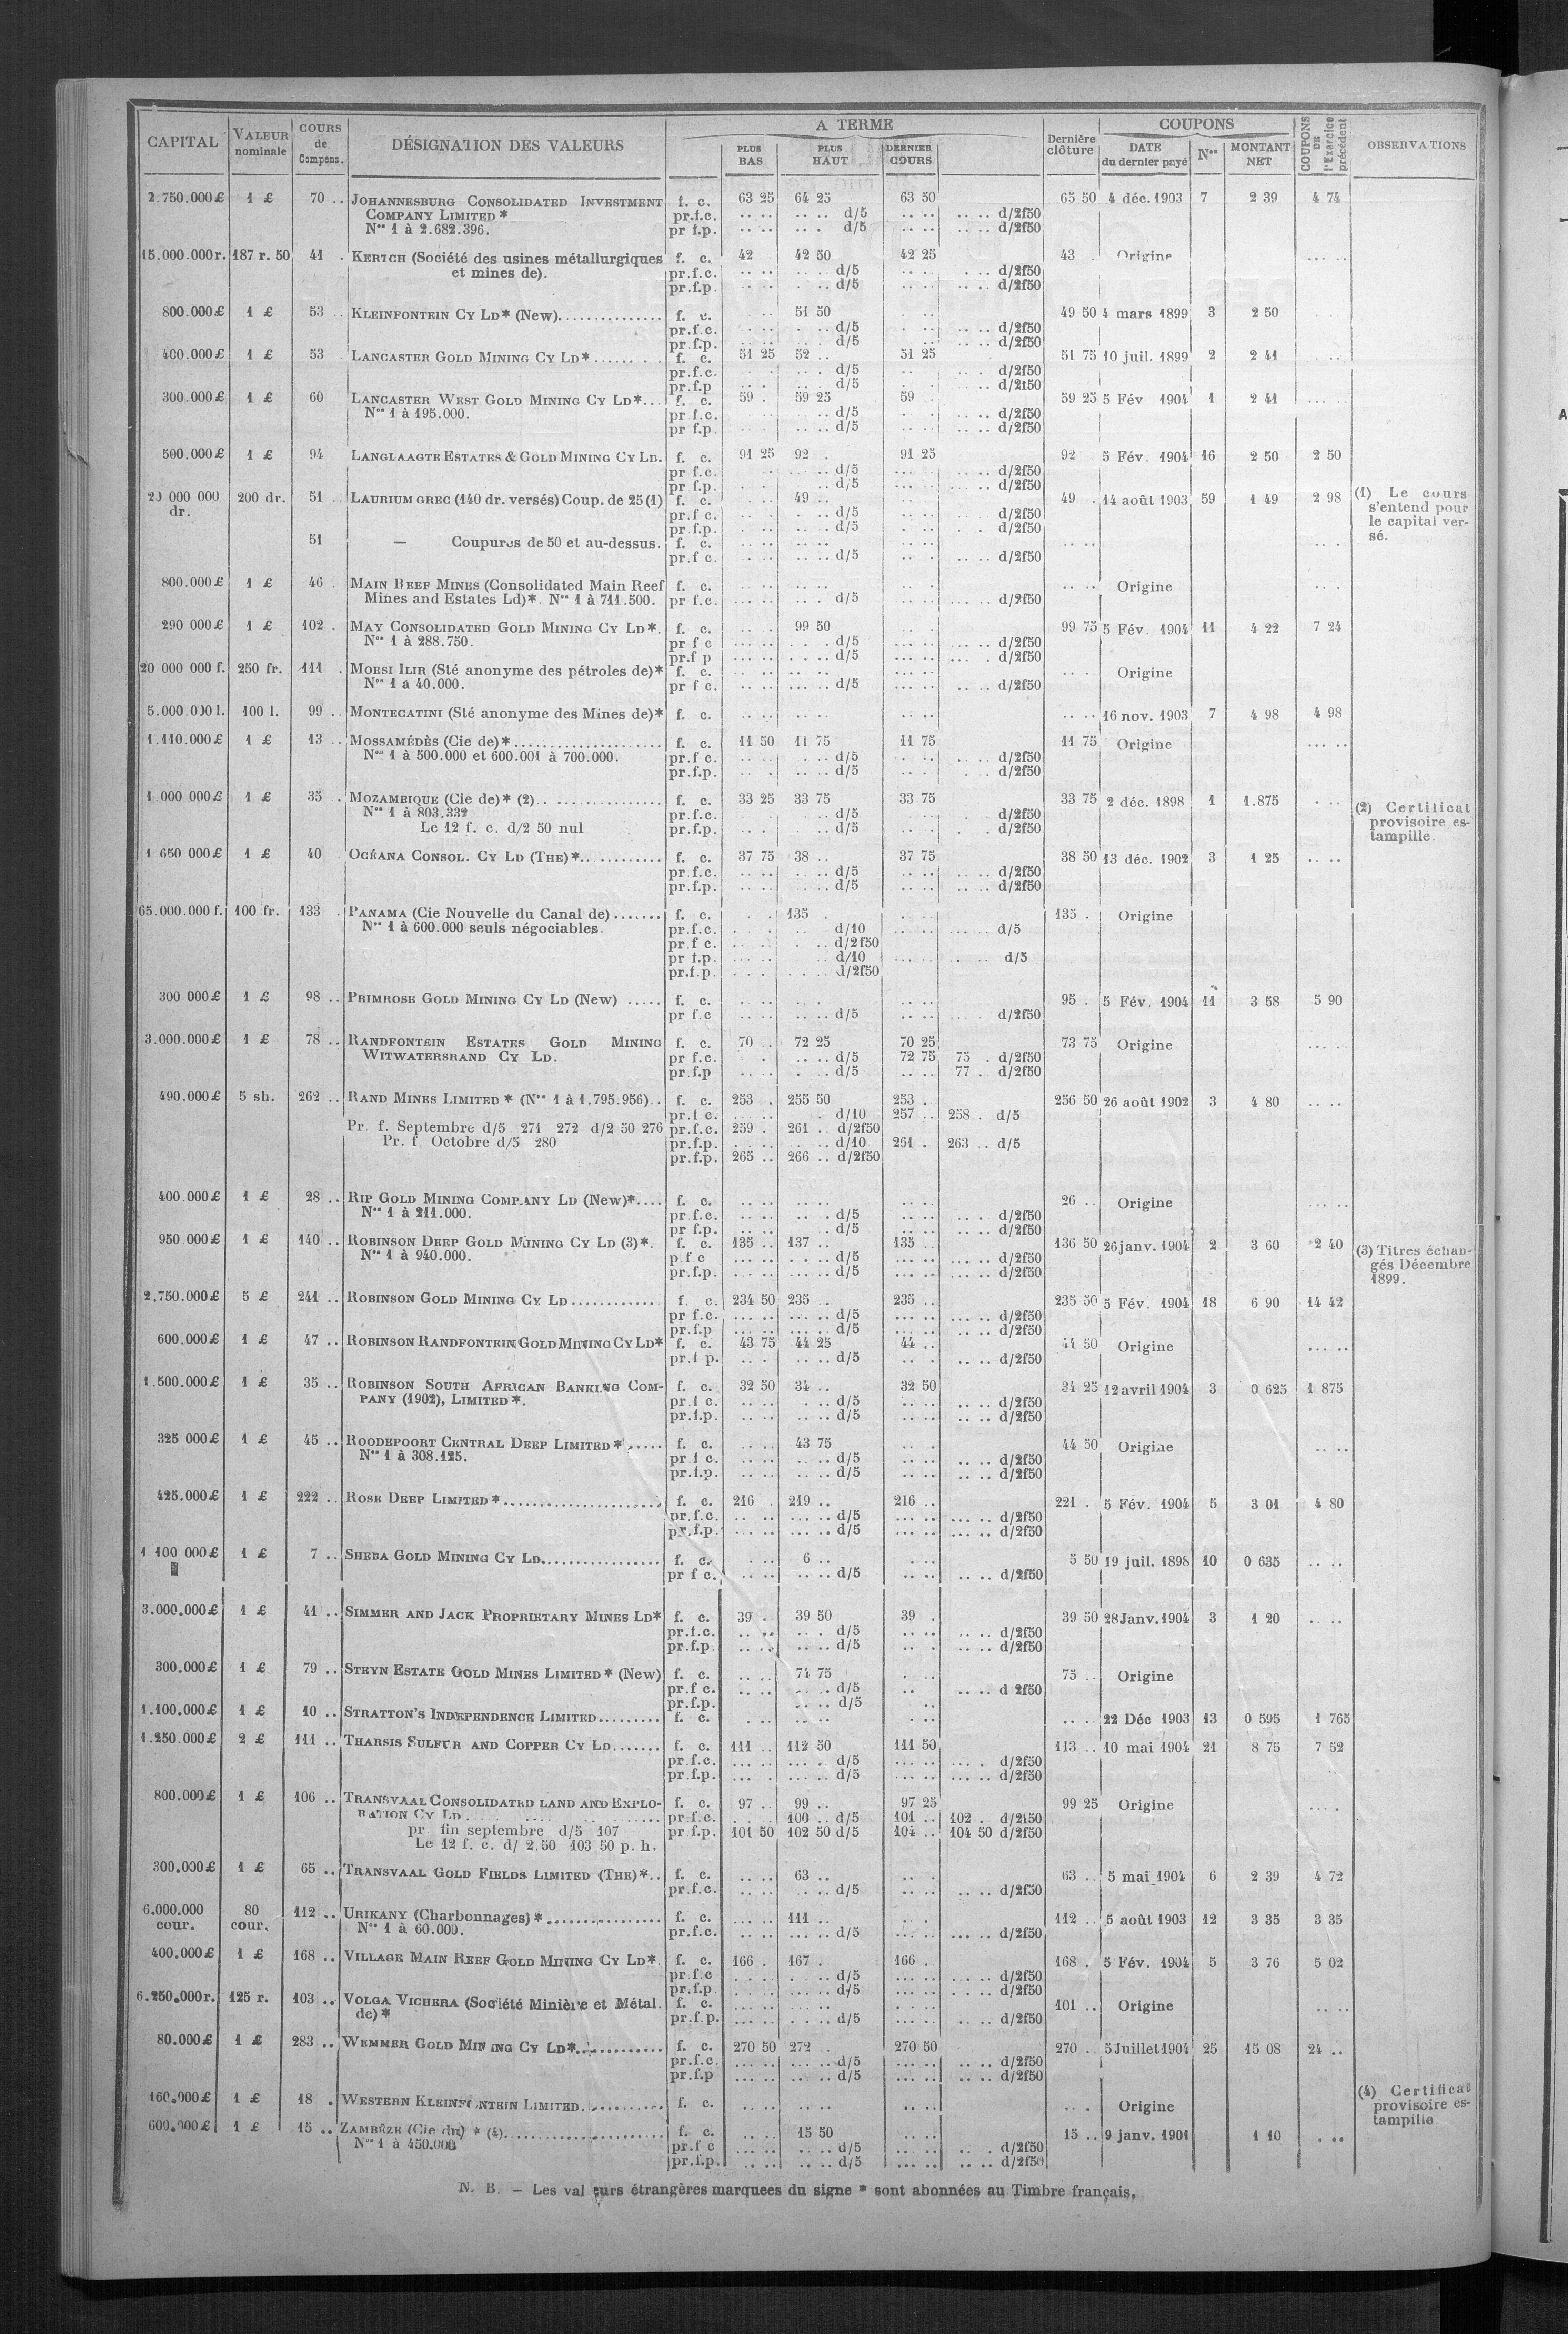 CAPITAL VALEUR nominale COURS de Compens. DÉSIGNATION DES VALEURS A TERME PLUS BAS PLUS HAUT DERNIER COURS Dernière clôture COUPONS DATE du dernier payé Nos MONTANT NET COUPONS DE l'Exercice précédent OBSERVATIONS
2.750.000£ 1 £ 70 .. JOHANNESBURG CONSOLIDATED INVESTMENT f. c. 63 25 64 25 63 50 65 50 4 déc. 1903 7 2 39 4 74
COMPANY LIMITED * pr.f.c. d/5 d/2f50
Nos 1 à 2.682.396. pr f.p. d/5 d/2f50
15.000.000r. 187 r. 50 41 . KERTCH (Société des usines métallurgiques f. c. 42 42 50 42 25 43 . Origine
et mines de). pr.f.c. d/5 d/2f50
pr.f.p. d/5 d/2f50
800.000£ 1 £ 53 .. KLEINFONTEIN CY LD* (New) f. c. 51 50 49 50 4 mars 1899 3 2 50
pr.f.c. d/5 d/2f50
pr.f.p. d/5 d/2f50
400.000£ 1 £ 53 LANCASTER GOLD MINING CY LD* f. c. 51 25 52 .. 51 25 51 75 10 juil. 1899 2 2 41
pr.f.c. d/5 d/2f50
pr.f.p d/5 d/2f50
300.000£ 1 £ 60 LANCASTER WEST GOLD MINING CY LD* f. c. 59 . 59 25 59 . 59 25 5 Fév 1904 1 2 41
Nos 1 à 195.000. pr f.c. d/5 d/2f50
pr f.p. d/5 d/2f50
500.000£ 1 £ 94 LANGLAAGTE ESTATES & GOLD MINING CY LD. f. c. 91 25 92 . 91 25 92 5 Fév. 1904 16 2 50 2 50
pr f.c. d/5 d/2f50
pr f.p. d/5 d/2f50
20 000 000 200 dr. 51 .. LAURIUM GREC (140 dr. versés) Coup. de 25 (1) f. c. 49 .. 49 . 14 août 1903 59 1 49 2 98 (1) Le cours
dr. pr.f c. d/5 d/2f50 s'entend pour
pr.f.p. d/5 d/2f50 le capital ver-
51 — Coupures de 50 et au-dessus. f. c. sé.
pr.f c. d/5 d/2f50
800.000£ 1 £ 46 . MAIN REEF MINES (Consolidated Main Reef f. c. Origine
Mines and Estates Ld)*. Nos 1 à 711.500. pr f.c. d/5 d/2f50
290 000£ 1 £ 102 . MAY CONSOLIDATED GOLD MINING CY LD*. f. c. 99 50 99 75 5 Fév. 1904 11 4 22 7 24
Nos 1 à 288.750. pr f c d/5 d/2f50
pr.f p d/5 d/2f50
20 000 000 f. 250 fr. 111 . MOESI ILIR (Sté anonyme des pétroles de)* f. c. Origine
Nos 1 à 40.000. pr f c. d/5 d/2f50
5.000.000 l. 100 l. 99 .. MONTECATINI (Sté anonyme des Mines de)* f. c. 16 nov. 1903 7 4 98 4 98
1.110.000£ 1 £ 13 .. MOSSAMÉDÈS (Cie de)* f. c. 11 50 11 75 11 75 11 75 Origine
Nos 1 à 500.000 et 600.001 à 700.000. pr.f c. d/5 d/2f50
pr.f.p. d/5 d/2f50
1.000 000£ 1 £ 35 . MOZAMBIQUE (Cie de)* (2) f. c. 33 25 33 75 33 75 33 75 2 déc. 1898 1 1.875 (2) Certificat
Nos 1 à 803.332 pr.f.c. d/5 d/2f50 provisoire es-
Le 12 f. c. d/2 50 nul pr.f.p. d/5 d/2f50 tampille.
1 650 000£ 1 £ 40 OCÉANA CONSOL. CY LD (THE)* f. c. 37 75 38 .. 37 75 38 50 13 déc. 1902 3 1 25
pr.f.c. d/5 d/2f50
pr.f.p. d/5 d/2f50
65.000.000 f. 100 fr. 133 . PANAMA (Cie Nouvelle du Canal de) f. c. 135 . 135 . Origine
Nos 1 à 600.000 seuls négociables. pr.f.c. d/10 d/5
pr.f c. d/2f50
pr f.p. d/10 d/5
pr.f.p. d/2f50
300 000£ 1 £ 98 .. PRIMROSE GOLD MINING CY LD (New) f. c. 95 . 5 Fév. 1904 11 3 58 5 90
pr f.c d/5 d/2f50
3.000.000£ 1 £ 78 .. RANDFONTEIN ESTATES GOLD MINING f. c. 70 . 72 25 70 25 73 75 Origine
WITWATERSRAND CY LD. pr f.c. d/5 72 75 75 . d/2f50
pr.f.p d/5 77 .. d/2f50
490.000£ 5 sh. 262 .. RAND MINES LIMITED * (Nos 1 à 1.795.956) f. c. 253 . 255 50 253 . 256 50 26 août 1902 3 4 80
pr.f c. d/10 257 .. 258 . d/5
Pr. f. Septembre d/5 271 272 d/2 50 276 pr.f.c. 259 . 261 .. d/2f50
Pr. f. Octobre d/5 280 pr.f.p. d/10 261 . 263 .. d/5
pr.f.p. 265 .. 266 .. d/2f50
400.000£ 1 £ 28 .. RIP GOLD MINING COMPANY LD (New)* f. c. 26 .. Origine
Nos 1 à 211.000. pr f.c. d/5 d/2f50
pr f.p. d/5 d/2f50
950 000£ 1 £ 140 .. ROBINSON DEEP GOLD MINING CY LD (3)*. f. c. 135 .. 137 .. 135 .. 136 50 26 janv. 1904 2 3 60 2 40 (3) Titres échan-
Nos 1 à 940.000. p f c d/5 d/2f50 gés Décembre
pr.f.p. d/5 d/2f50 1899.
2.750.000£ 5 £ 241 .. ROBINSON GOLD MINING CY LD f. c. 234 50 235 .. 235 .. 235 50 5 Fév. 1904 18 6 90 14 42
pr f.c. d/5 d/2f50
pr.f.p d/5 d/2f50
600.000£ 1 £ 47 .. ROBINSON RANDFONTEIN GOLD MINING CY LD* f. c. 43 75 44 25 44 .. 44 50 Origine
pr.f p. d/5 d/2f50
1.500.000£ 1 £ 35 .. ROBINSON SOUTH AFRICAN BANKING COM- f. c. 32 50 34 .. 32 50 34 25 12 avril 1904 3 0 625 1 875
PANY (1902), LIMITED *. pr.f c. d/5 d/2f50
pr.f.p. d/5 d/2f50
325 000£ 1 £ 45 .. ROODEPOORT CENTRAL DEEP LIMITED * f. c. 43 75 44 50 Origine
Nos 1 à 308.125. pr f c. d/5 d/2f50
pr.f.p. d/5 d/2f50
425.000£ 1 £ 222 .. ROSE DEEP LIMITED * f. c. 216 . 219 .. 216 .. 221 . 5 Fév. 1904 5 3 01 4 80
pr.f.c. d/5 d/2f50
pr.f.p. d/5 d/2f50
1 100 000£ 1 £ 7 .. SHEBA GOLD MINING CY LD. f. c. 6 .. 5 50 19 juil. 1898 10 0 635
pr f c. d/5 d/2f50
3.000.000£ 1 £ 41 .. SIMMER AND JACK PROPRIETARY MINES LD* f. c. 39 .. 39 50 39 . 39 50 28 Janv. 1904 3 1 20
pr.f.c. d/5 d/2f50
pr.f.p. d/5 d/2f50
300.000£ 1 £ 79 .. STEYN ESTATE GOLD MINES LIMITED * (New) f. c. 74 75 75 .. Origine
pr.f c. d/5 d 2f50
pr.f.p. d/5
1.100.000£ 1 £ 10 .. STRATTON'S INDEPENDENCE LIMITED f. c. 22 Déc 1903 13 0 595 1 765
1.250.000£ 2 £ 111 .. THARSIS SULFUR AND COPPER CY LD f. c. 111 .. 112 50 111 50 113 .. 10 mai 1904 21 8 75 7 52
pr f.c. d/5 d/2f50
pr.f.p. d/5 d/2f50
800.000£ 1 £ 106 .. TRANSVAAL CONSOLIDATED LAND AND EXPLO- f. c. 97 .. 99 .. 97 25 99 25 Origine
RATION CY LD pr.f.c. 100 .. d/5 101 .. 102 . d/2f50
pr fin septembre d/5 107 pr f.p. 101 50 102 50 d/5 104 .. 104 50 d/2f50
Le 12 f. c. d/ 2.50 103 50 p. h.
300.000£ 1 £ 65 .. TRANSVAAL GOLD FIELDS LIMITED (THE)* f. c. 63 .. 63 .. 5 mai 1904 6 2 39 4 72
pr.f.c. d/5 d/2f50
6.000.000 80 112 .. URIKANY (Charbonnages) * f. c. 111 .. 112 .. 5 août 1903 12 3 35 3 35
cour. cour. Nos 1 à 60.000. pr.f.c. d/5 d/2f50
400.000£ 1 £ 168 .. VILLAGE MAIN REEF GOLD MINING CY LD*. f. c. 166 . 167 . 166 . 168 . 5 Fév. 1904 5 3 76 5 02
pr f c d/5 d/2f50
pr.f.p. d/5 d/2f50
6.250.000r. 125 r. 103 .. VOLGA VICHERA (Société Minière et Métal. f. c. 101 .. Origine
de) * pr.f.p. d/5 d/2f50
80.000£ 1 £ 283 .. WEMMER GOLD MINING CY LD* f. c. 270 50 272 .. 270 50 270 .. 5 Juillet 1904 25 15 08 24 ..
pr.f.c. d/5 d/2f50
pr.f.p d/5 d/2f50
160.000£ 1 £ 18 . WESTERN KLEINFONTEIN LIMITED. f. c. Origine (4) Certificat
600.000£ 1 £ 15 .. ZAMBÈZE (Cie du) * (4) f. c. 15 50 15 .. 9 janv. 1901 1 10 provisoire es-
Nos 1 à 450.000 pr.f c d/5 d/2f50 tampille
pr.f.p. d/5 d/2f50
N. B. — Les valeurs étrangères marquees du signe * sont abonnées au Timbre français.